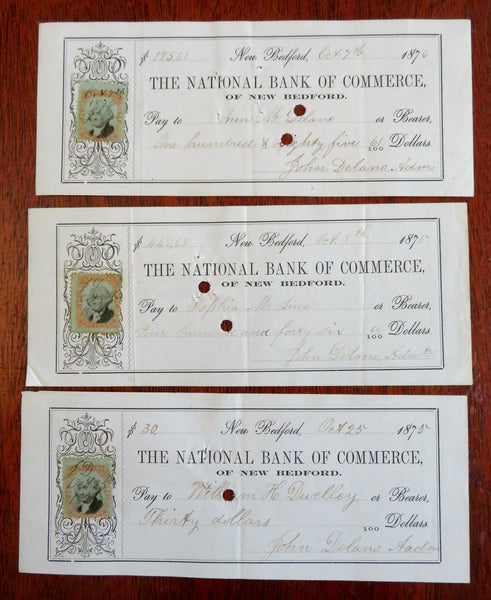 $ 185.61 New Bedford, Oct 7th 1876
THE NATIONAL BANK OF COMMERCE,
OF NEW BEDFORD.
Pay to Ann M. Delano or Bearer,
One hundred & eighty five 61/100 Dollars.
John Delano Adm
$ 446,68 New Bedford, Oct. 5th 1875
THE NATIONAL BANK OF COMMERCE,
OF NEW BEDFORD.
Pay to M. Luce or Bearer,
Four hundred and forty six 68/100 Dollars.
John Delano Adm
$ 30. New Bedford, Oct 25 1875
THE NATIONAL BANK OF COMMERCE,
OF NEW BEDFORD.
Pay to William H Dwelley or Bearer,
Thirty dollars 100 Dollars.
John Delano Aadm